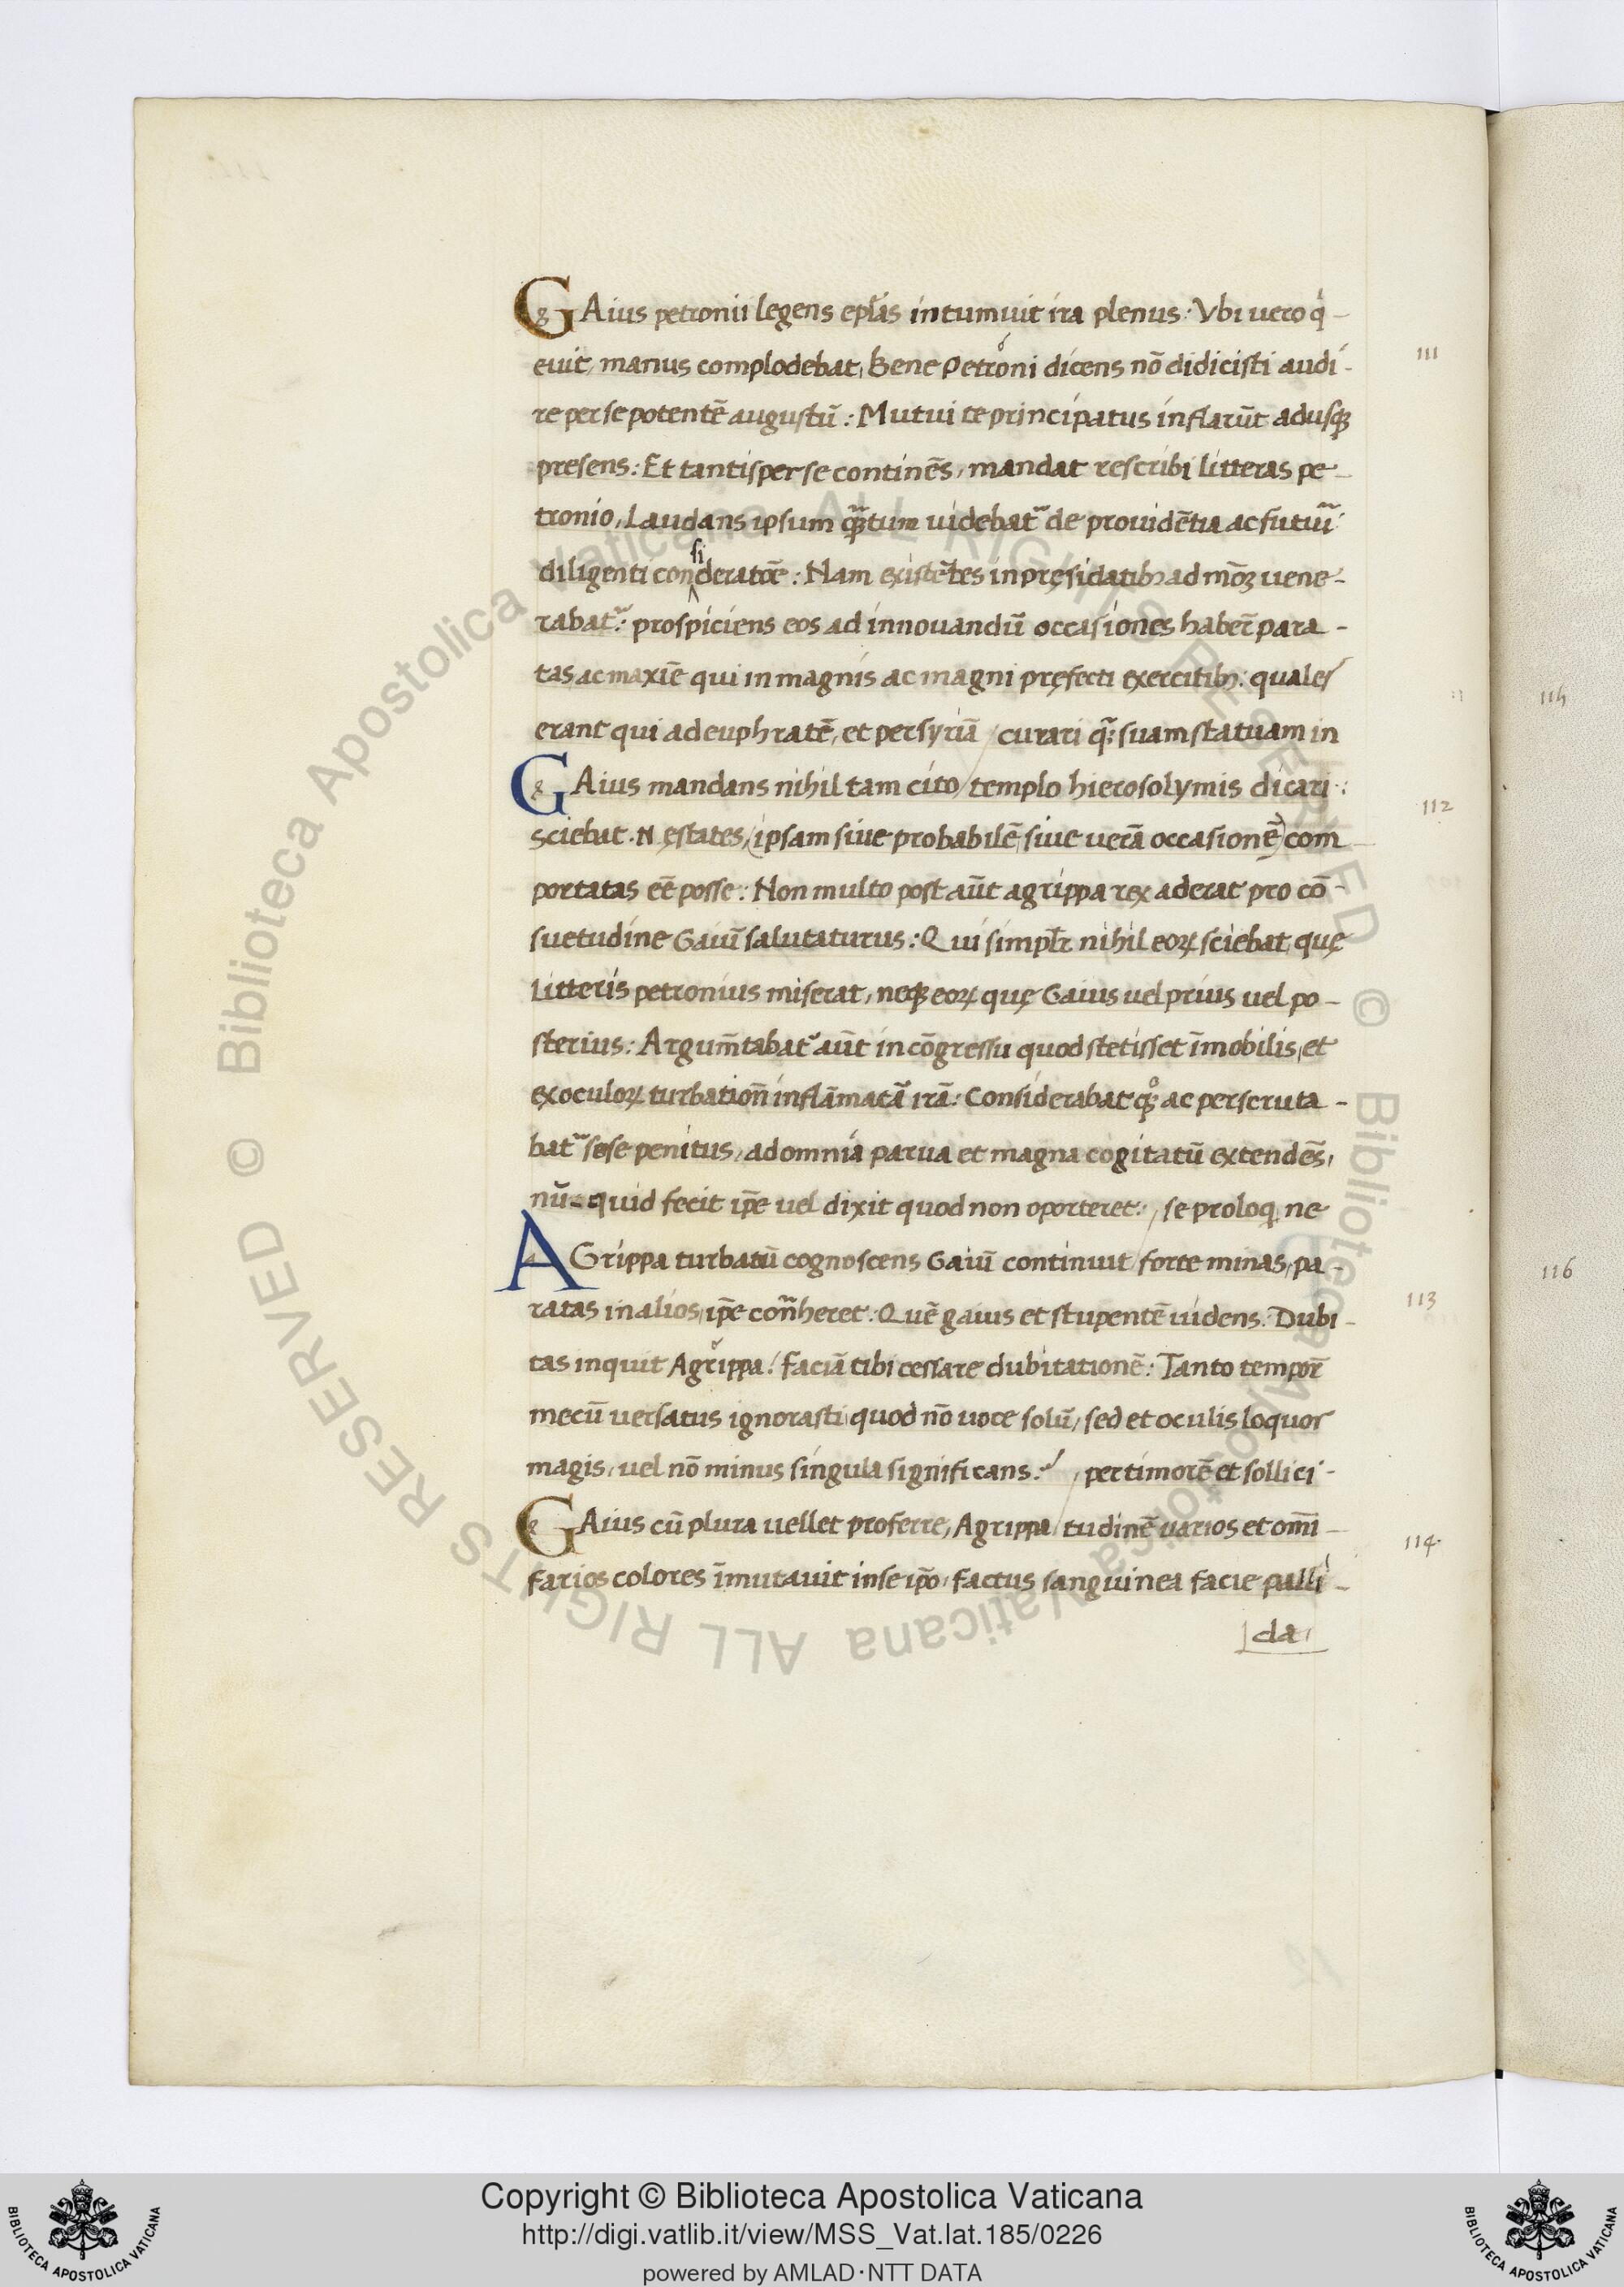 GAius petronii legens epl̃as intumuit ira plenus: Vbi uero q̇-
euit, manus complodebat, Bene Petroni dicens nõ didicisti audi-
re per se potentẽ augustũ: Mutui te principatus inflarũt adusqꝫ
presens: Et tantisper se continẽs, mandat rescribi litteras pe-
tronio, Laudans ipsum qꝫ̃tum uidebat᷑ de prouidẽtia ac futuri
diligenti consideratõe: Nam existẽtes in pręsidatibꝫ ad mõꝫ uene-
rabat᷑: prospiciens eos ad innouandũ occasiones haber̃ para-
tas ac maxiẽ qui in magnis ac magni pręfecti exercitibꝫ: quales
erant qui ad euphratẽ, et per syriã / curari qꝫ̃: suam statuam in
GAius mandans nihil tam cito / templo hierosolymis dicari:
sciebat. N. ęstates, (ipsam siue probabilẽ, siue uerã occasionẽ) com
portatas eẽ posse: Non multo post aũt agrippa rex aderat pro cõ-
suetudine Gaiũ salutaturus: Qui simpłr nihil eoꝝ sciebat, quę
Litteris petronius miserat, neqꝫ eoꝝ quę Gaius uel prius uel po-
sterius: Argum̃tabat᷑ aũt in cõgressu quod stetisset ĩmobilis, et
ex oculoꝝ turbatioñ inflãmatã irã: Considerabat qꝫͦ ac perscruta-
bat᷑ sese penitus, ad omnia parua et magna cogitatũ extendẽs,
nũ-quid fecit ip̃e uel dixit quod non oporteret: / se proloqꝫ ne
AGrippa turbatũ cognoscens Gaiũ continuit / forte minas, pa-
ratas in alios, ip̃e cont᷑heret: Quẽ gaius et stupentẽ uidens: Dubi-
tas inquit Agrippa? faciã tibi cessare dubitationẽ: Tanto tempor̃
mecũ uersatus ignorasti quod nõ uoce solũ, sed et oculis loquor
magis, uel nõ minus singula significans: / per timorẽ et sollici-
GAius cũ plura uellet proferre, Agrippa / tudinẽ uarios et om̃i-
farios colores ĩmutauit in se ip̃o, factus sanguinea facie palli-
da,
111
112
113
114
115
116
© Biblioteca Apostolica Vaticana ALL RIGHTS RESERVED © Biblioteca Apostolica Vaticana ALL RIGHTS RESERVED
Copyright © Biblioteca Apostolica Vaticana
http://digi.vatlib.it/view/MSS_Vat.lat.185/0226
powered by AMLAD·NTT DATA
BIBLIOTECA APOSTOLICA VATICANA
BIBLIOTECA APOSTOLICA VATICANA